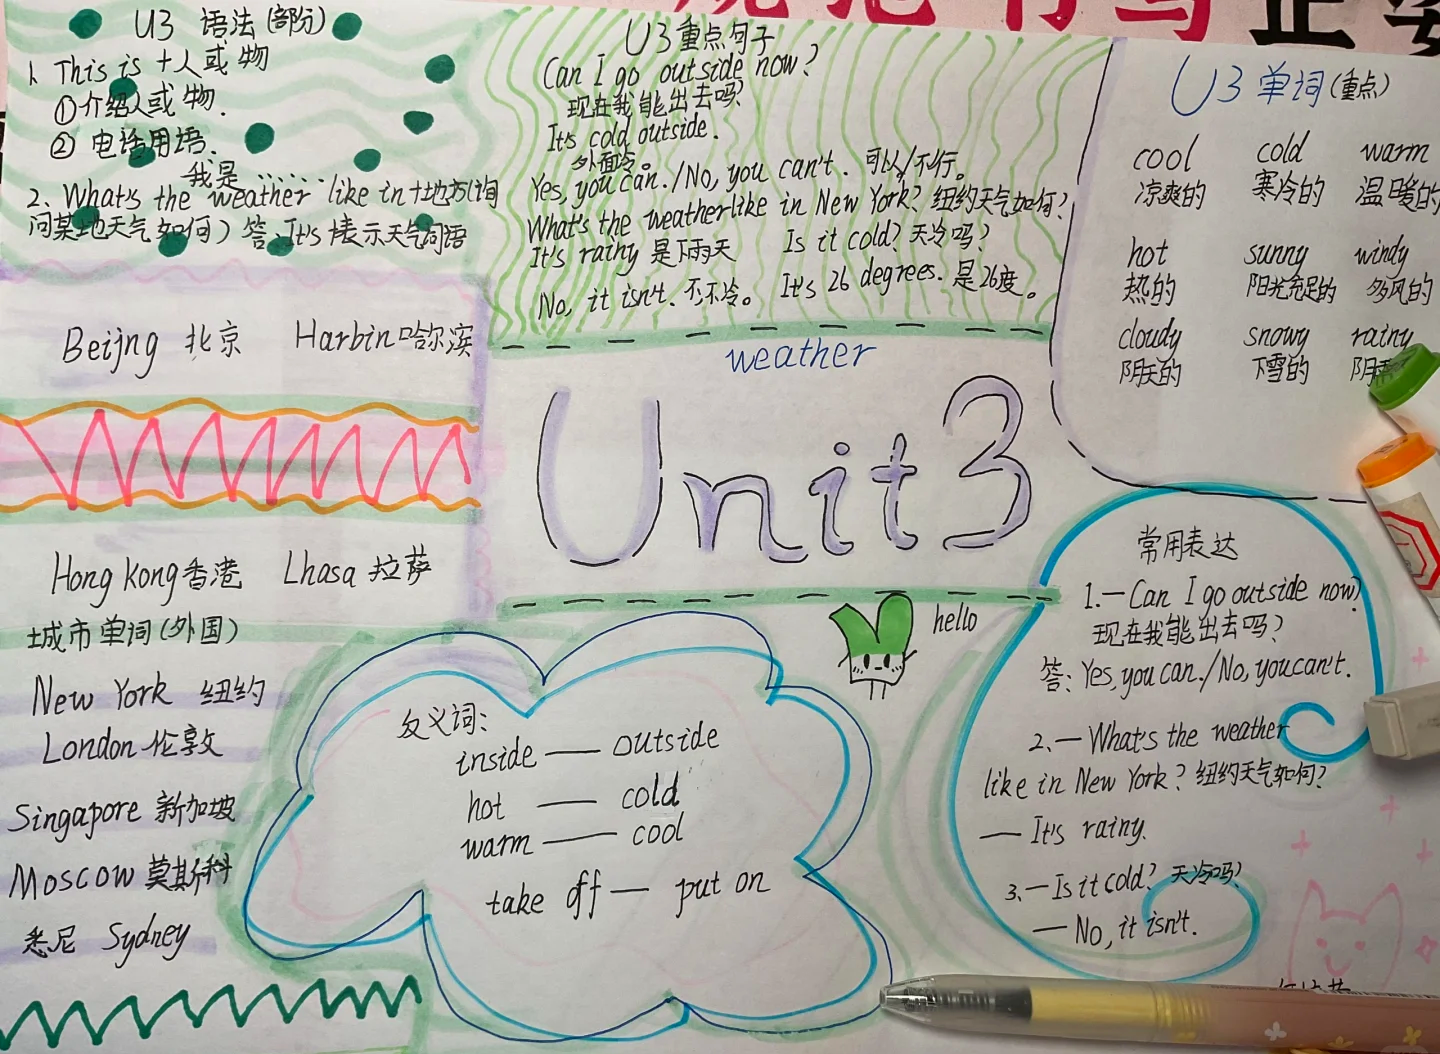 U3 语法(部份)
1. This is +人或物
①介绍人或物.
② 电话用语.
我是……
2. What's the weather like in +地方(询
问某地天气如何) 答: It's +表示天气词语
Beijng 北京 Harbin 哈尔滨
Hong Kong 香港 Lhasa 拉萨
城市单词(外国)
New York 纽约
London 伦敦
Singapore 新加坡
Moscow 莫斯科
悉尼 Sydney
U3重点句子
Can I go outside now?
现在我能出去吗?
It's cold outside.
外面冷。
Yes, you can. / No, you can't. 可以/不行。
What's the weather like in New York? 纽约天气如何?
It's rainy 是下雨天 Is it cold? 天冷吗?
No, it isn't. 不,不冷。 It's 26 degrees. 是26度。
weather
Unit3
hello
反义词:
inside — outside
hot — cold
warm — cool
take off — put on
U3 单词(重点)
cool cold warm
凉爽的 寒冷的 温暖的
hot sunny windy
热的 阳光充足的 多风的
cloudy snowy rainy
阴天的 下雪的 阴
常用表达
1.—Can I go outside now?
现在我能出去吗?
答: Yes, you can. / No, you can't.
2.—What's the weather
like in New York? 纽约天气如何?
— It's rainy.
3.—Is it cold? 天冷吗?
— No, it isn't.